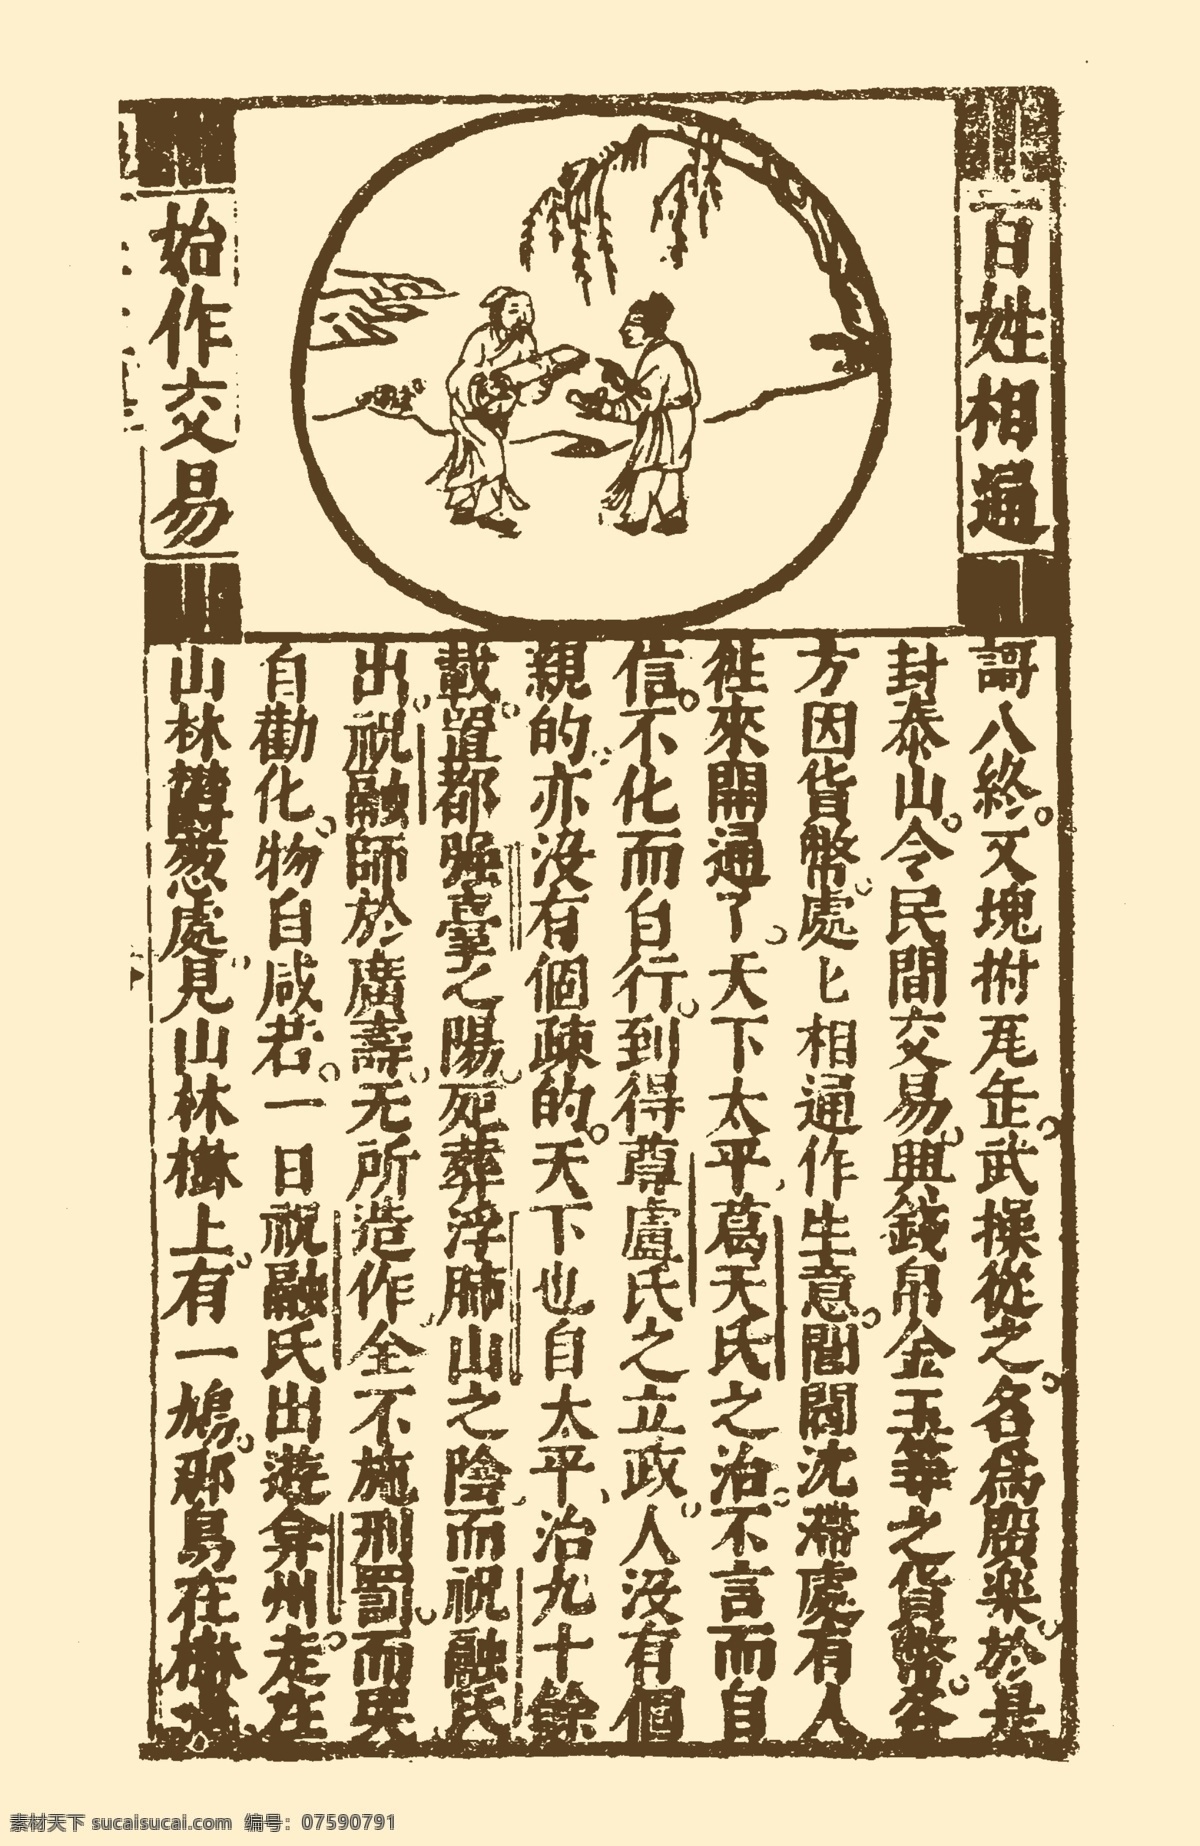 百姓相通
始作交易
謌八終又塊拊瓦缶武操從之名爲廣樂於是
封泰山令民間交易興錢帛金玉等之貨幣各
方因貨幣處匕相通作生意閭閻沈滯處有人
徃來開通了天下太平葛天氏之治不言而自
信不化而自行到得尊盧氏之立政人沒有個
親的亦沒有個疎的天下也自太平治九十餘
載置都强臺之陽死葬浮肺山之陰而祝融氏
出祝融師於廣壽无所造作全不施刑罰而民
自勸化物自咸若一日祝融氏出遊弇州走在
山林鬱葱處見山林樹上有一鳩那鳥在樹
素材天下 sucaisucai.com 编号：07590791